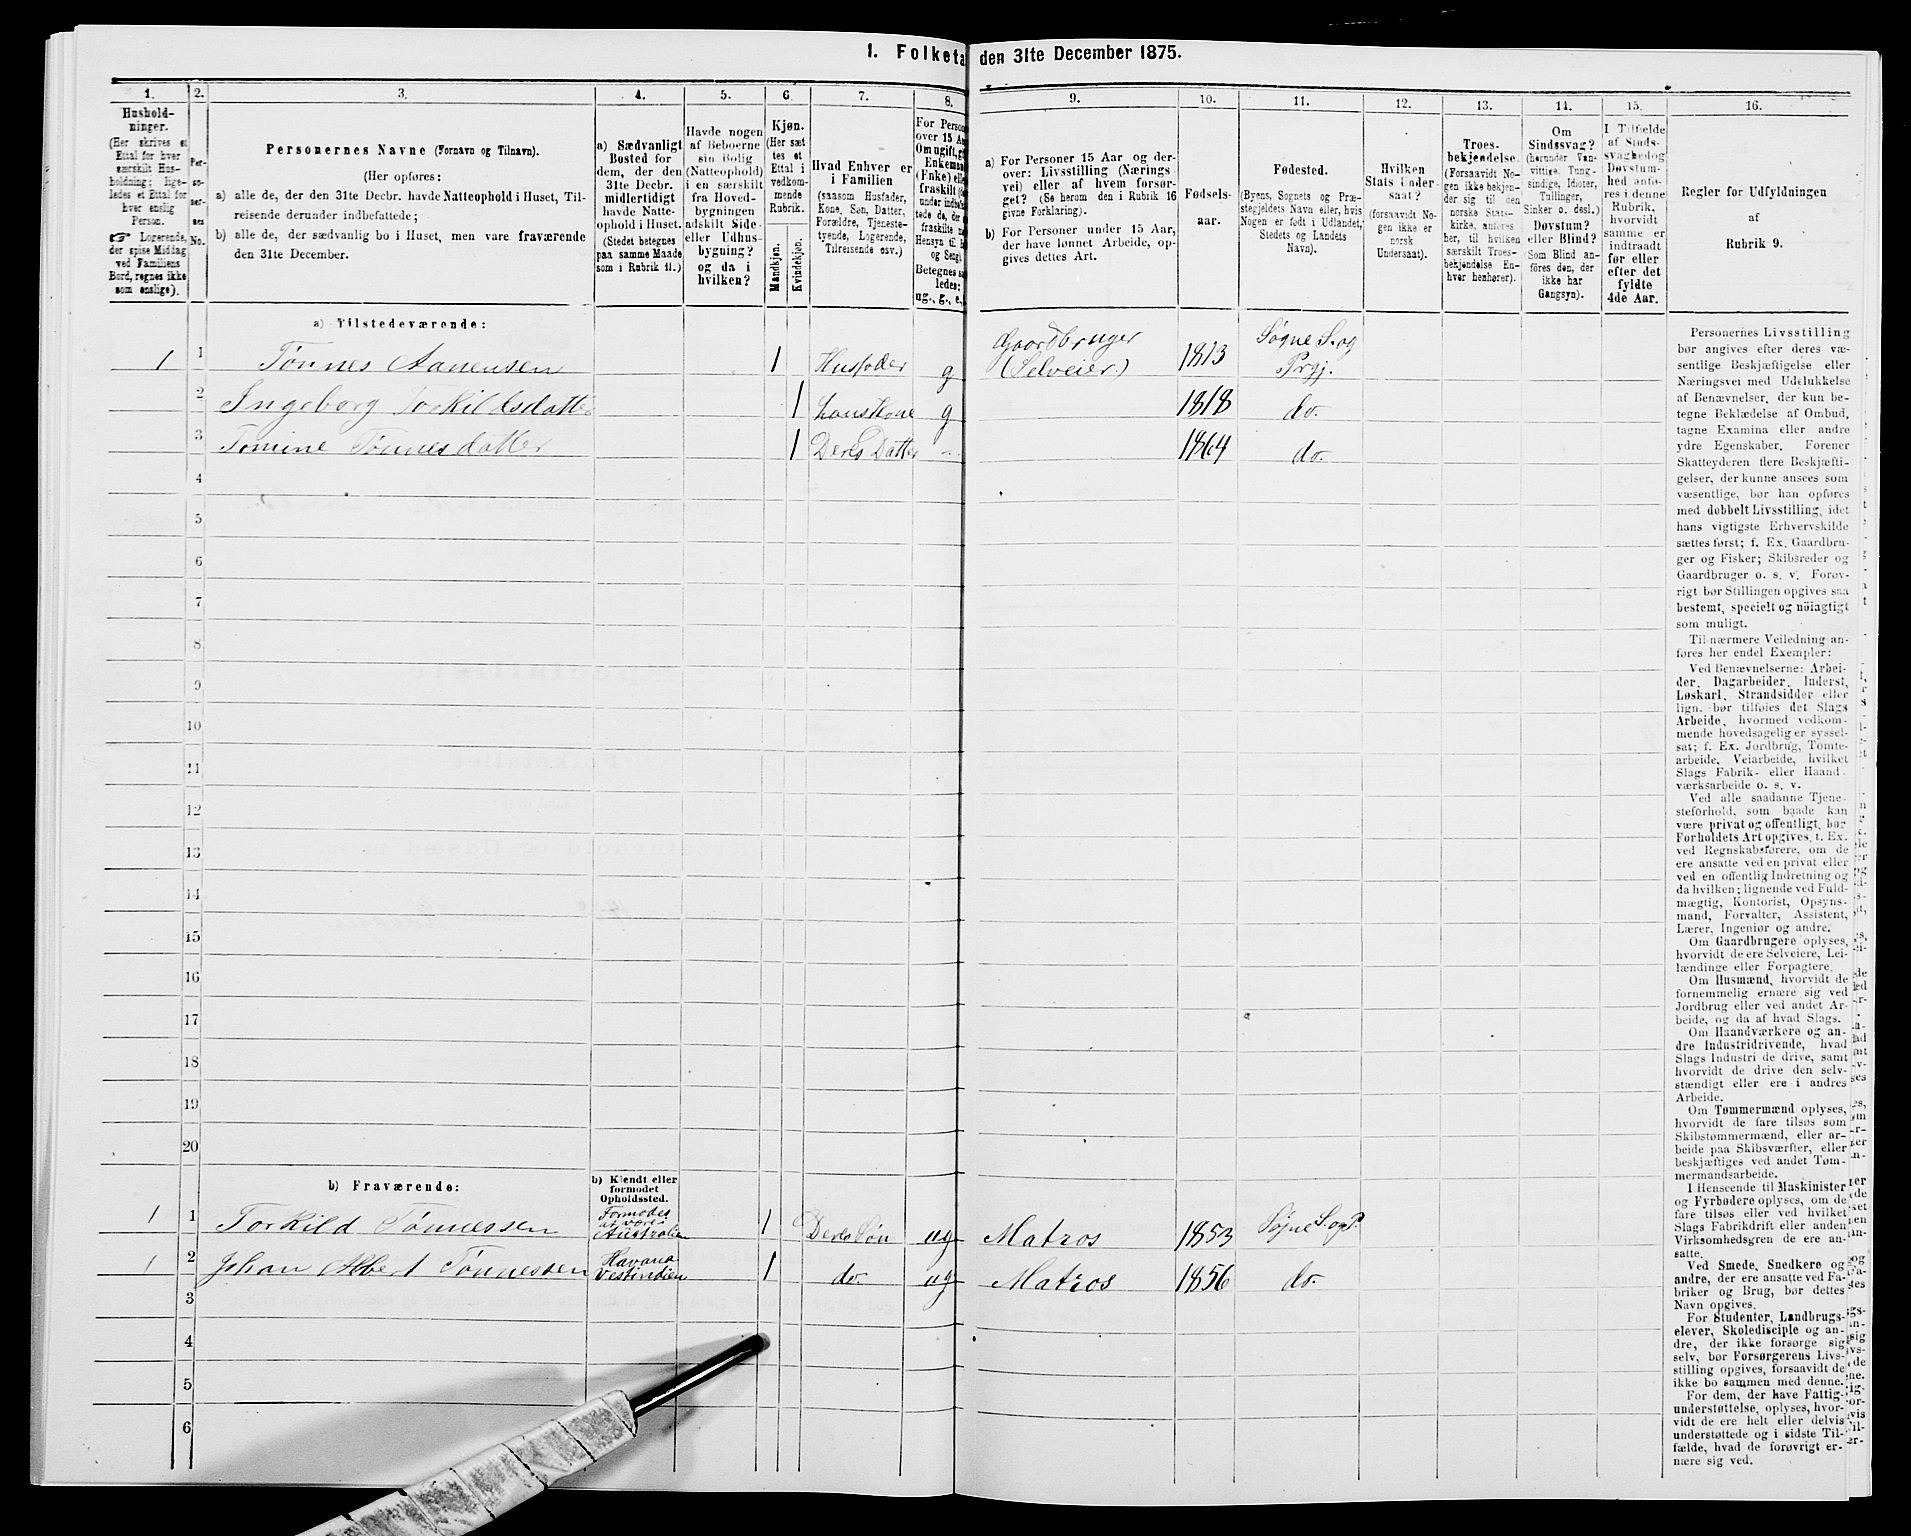 1. Folketa den 31te December 1875.
1.
2.
3.
4.
5.
6.
7.
8.
9.
10.
11.
12.
13.
14.
15.
16.
Hushold-
ninger.
(Her skrives et
Ettal for hver
særskilt Hus-
holdning; lige-
ledes et Ettal for
hver enslig
Person.
☞ Logerende,
der spise Middag
ved Familiens
Bord, regnes ikke
som enslige).
Per-
so-
ner-
nes
No.
Personernes Navne (Fornavn og Tilnavn).
(Her opføres:
a) alle de, der den 31te Decbr. havde Natteophold i Huset, Til-
reisende derunder indbefattede;
b) alle de, der sædvanlig bo i Huset, men vare fraværende
den 31te December.
a) Sædvanligt
Bosted for
dem, der den
31te Decbr.
midlertidigt
havde Natte-
ophold i Huset.
(Stedet betegnes
paa samme Maade
som i Rubrik 11.)
Havde nogen
af Beboerne
sin Bolig
(Natteophold)
i en særskilt
fra Hoved-
bygningen
adskilt Side-
eller Udhus-
bygning?
og da i
hvilken?
Kjøn.
(Her sæt
tes et
Ettal i
vedkom-
mende
Rubrik.
Mandkjøn.
Kvindekjøn.
Hvad Enhver er
i Familien
(saasom Husfader,
Kone, Søn, Datter,
Forældre, Tjeneste-
tyende, Logerende,
Tilreisende osv.)
For Person
over 15 Aa
Om ugift, gi
Enkeman
(Enke) elle
fraskilt (de
under indbe
tede de, der
fraskilte m
Hensyn til B
og Seng).
Betegnes sa
ledes:
ug., g., e.,
a) For Personer 15 Aar og der-
over: Livsstilling (Nærings
vei) eller af hvem forsør-
get? (Se herom den i Rubrik 16
givne Forklaring).
b) For Personer under 15 Aar,
der have lønnet Arbeide, op-
gives dettes Art.
Fødsels-
aar.
Fødested.
(Byens, Sognets og Præ-
stegjeldets Navn eller, hvis
Nogen er født i Udlandet,
Stedets og Landets
Navn).
Hvilken
Stats Under-
saat?
(forsaavidt No-
gen ikke er
norsk
Undersaat).
Troes-
bekjendelse.
(Forsaavidt No-
gen ikke bekjen-
der sig til den
norske Stats-
kirke, anføres
her, til hvilken
særskilt Troes-
bekjendelse En-
hver henhører).
Om
Sindssvag?
(herunder Van-
vittige, Tung-
sindige, Idioter,
Tullinger,
Sinker o. desl.)
Døvstum?
eller Blind?
(Som Blind an-
føres den, der
ikke har
Gangsyn).
I Tilfælde
af Sinds-
svaghed og
Døvstum-
hed anfø-
res i denne
Rubrik,
hvorvidt
samme er
indtraadt
før eller
efter det
fyldte
4de Aar.
Regler for Udfyldningen
af
Rubrik 9.
a) Tilstedeværende:
1 1 Tønnes Aanensen 1 Husfader g Gaardbruger (Selveier) 1813 Søgne S. og Prgj.
2 Ingeborg Torkildsdatter 1 hans Kone g 1818 do.
3 Tomine Tønnesdatter 1 Deres Datter - 1864 do.
4
5
6
7
8
9
10
11
12
13
14
15
16
17
18
19
20
b) Fraværende:
b) Kjendt eller
formodet
Opholdssted.
1 1 Torkild Tønnessen Formodes at være i Australien 1 Deres Søn ug Matros 1853 Søgne S. og P.
1 2 Johan Albert Tønnessen Havana Vestindien 1 do. ug Matros 1856 do.
3
4
5
6
Personernes Livsstilling
bør angives efter deres væ-
sentlige Beskjæftigelse eller
Næringsvei med Udelukkelse
af Benævnelser, der kun be-
tegne Beklædelse af Ombud,
tagne Examina eller andre
ydre Egenskaber. Forener
Skatteyderen flere Beskjæfti-
gelser, der kunne ansees som
væsentlige, bør han opføres
med dobbelt Livsstilling, idet
hans vigtigste Erhvervskilde
sættes først; f. Ex. Gaardbru-
ger og Fisker; Skibsreder og
Gaardbruger o. s. v. Forøv-
rigt bør Stillingen opgives saa
bestemt, specielt og nøiagtigt
som muligt.
Til nærmere Veiledning an-
føres her endel Exempler:
Ved Benævnelserne: Arbei-
der, Dagarbeider, Inderst,
Løskarl, Strandsidder eller
lign. bør tilføies det Slags
Arbeide, hvormed vedkom-
mende hovedsagelig er syssel-
sat; f. Ex. Jordbrug, Tomte-
arbeide, Veiarbeide, hvilket
Slags Fabrik- eller Haand-
værksarbeide o. s. v.
Ved alle saadanne Tjene-
steforhold, som baade kan
være privat og offentligt, bør
Forholdets Art opgives, f. Ex.
ved Regnskabsførere, om de
ere ansatte ved en privat eller
ved en offentlig Indretning og
da hvilken; lignende ved Fuld-
mægtig, Kontorist, Opsyns-
mand, Forvalter, Assistent,
Lærer, Ingeniør og andre.
Om Gaardbrugere oplyses,
hvorvidt de ere Selveiere, Lei-
lændinge eller Forpagtere.
Om Husmænd, hvorvidt de
fornemmelig ernære sig ved
Jordbrug eller ved andet Ar-
beide, og da af hvad Slags.
Om Haandværkere og an-
dre Industridrivende, hvad
Slags Industri de drive, samt
hvorvidt de drive den selv-
stændigt eller ere i andres
Arbeide.
Om Tømmermænd oplyses,
hvorvidt de fare tilsøs som
Skibstømmermænd, eller ar-
beide paa Skibsværfter, eller
beskjæftiges ved andet Tøm-
mermandsarbeide.
I Henseende til Maskinister
og Fyrbødere oplyses, om de
fare tilsøs eller ved hvilket
Slags Fabrikdrift eller anden
Virksomhedsgren de ere an-
satte.
Ved Smede, Snedkere og
andre, der ere ansatte ved Fa-
briker og Brug, bør dettes
Navn opgives.
For Studenter, Landbrugs-
elever, Skoledisciple og an-
dre, der ikke forsørge sig
selv, bør Forsørgerens Livs-
stilling opgives, forsaavidt de
ikke bo sammen med denne.
For dem, der have Fattig-
understøttelse, oplyses, hvor-
vidt de ere helt eller delvis
understøttede og i sidste Til-
fælde, hvad de forøvrigt er-
nære sig ved.